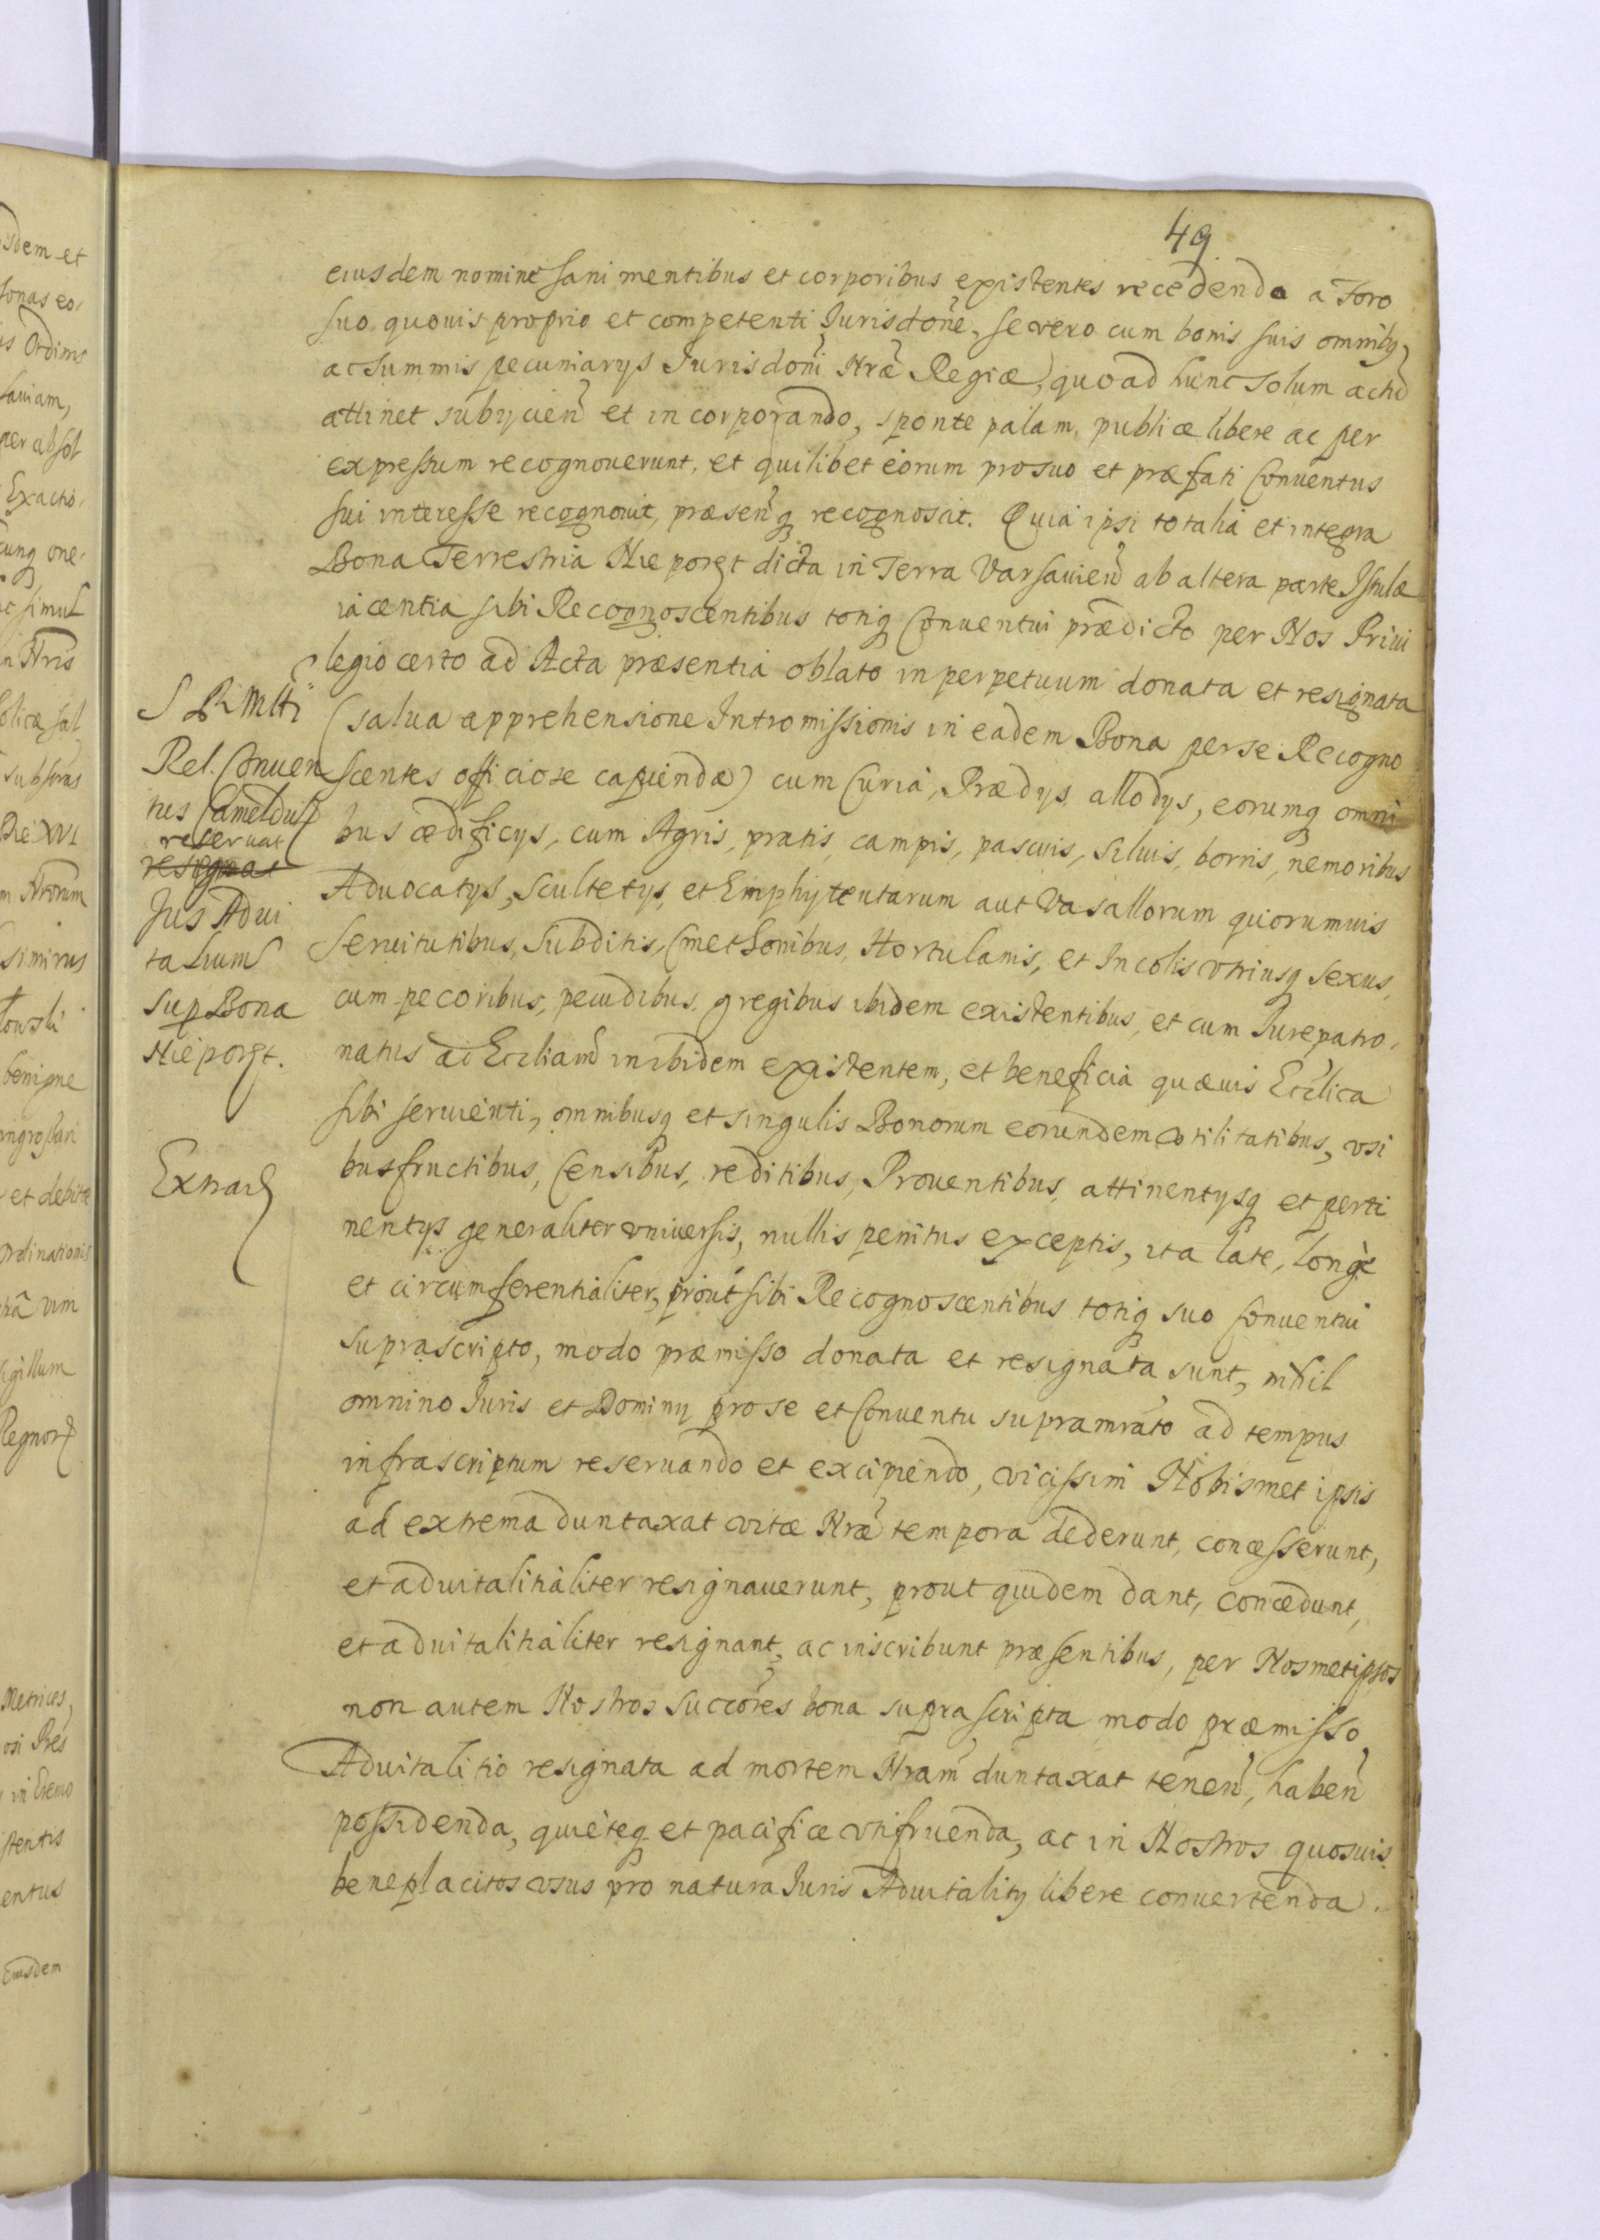 49
eiusdem nomine sani mentibus et corporibus existentes recedendo a Foro
suo quouis proprio et competenti Jurisdone, se vero cum bonis suis omnibq
ac summis pecuniarys Jurisdoni Nræ Regiæ, quoad hunc solum actu
attinet subycien et incorporando, sponte palam publicæ libere ac per
expressum recognouerunt, et quilibet eorum pro suo et præfati Conuentus
sui interesse recognouit, præsenq recognoscit. Quia ipsi totalia et integra
Bona Terrestria Nieporęt dicta in Terra Varsauien ab altera parte Istulæ
iacentia sibi Recognoscentibus totiq Conuentui prædicto per Nos Priui
legio certo ad Acta præsentia oblato in perpetuum donata et resignata
(salua apprehensione Intromissionis in eadem Bona per se Recogno
scentes officiose capiendæ) cum Curia, Prædys, allodys, eorumq omni
bus ædificys, cum Agris, pratis, campis, pascuis, siluis, borris, nemoribus
Aduocatys, Scultetys, et Emphyteutarum aut Vasallorum quorumuis
seruitutibus, Subditis, Cmethonibus, Hortulanis, et Incolis vtriusq sexus,
cum pecoribus, pecudibus, gregibus ibidem existentibus, et cum Iure patro,
natus ad Eccliam inibidem existentem, et beneficia quæuis Ecclica
sibi seruienti, omnibusq et singulis Bonorum eorundem vtilitatibus, vsi
bus fructibus, Censibus, reditibus, Prouentibus, attinentysq et perti
nentys generaliter vniuersis, nullis penitus exceptis, ita late, longe
et circumferentialiter, prout sibi Recognoscentibus totiq suo Conuentui
suprascripto, modo præmisso donata et resignata sunt, nihil
omnino Iuris et Dominy pro se et Conuentu supramrato ad tempus
infrascriptum reseruando et excipiendo, vicissim Nobismet ipsis
ad extrema duntaxat vitæ Nræ tempora dederunt, concesserunt,
et aduitalitialiter resignauerunt, prout quidem dant, concedunt,
et aduitalitialiter resignant, ac inscribunt præsentibus, per Nosmetipsos
non autem Nostros succores bona suprascripta modo præmisso
Aduitalitio resignata ad mortem Nram duntaxat tenen, haben
possidenda, quieteq et pacificæ vtifruenda, ac in Nostros quosuis
beneplacitos vsus pro natura Iuris Aduitality libere conuertenda.
S R Mtti
Rel. Conuen
tus Camelduls
reseruat
resignat
Jus Adui
talium
sup Bona
Nieporęt.
Extrad